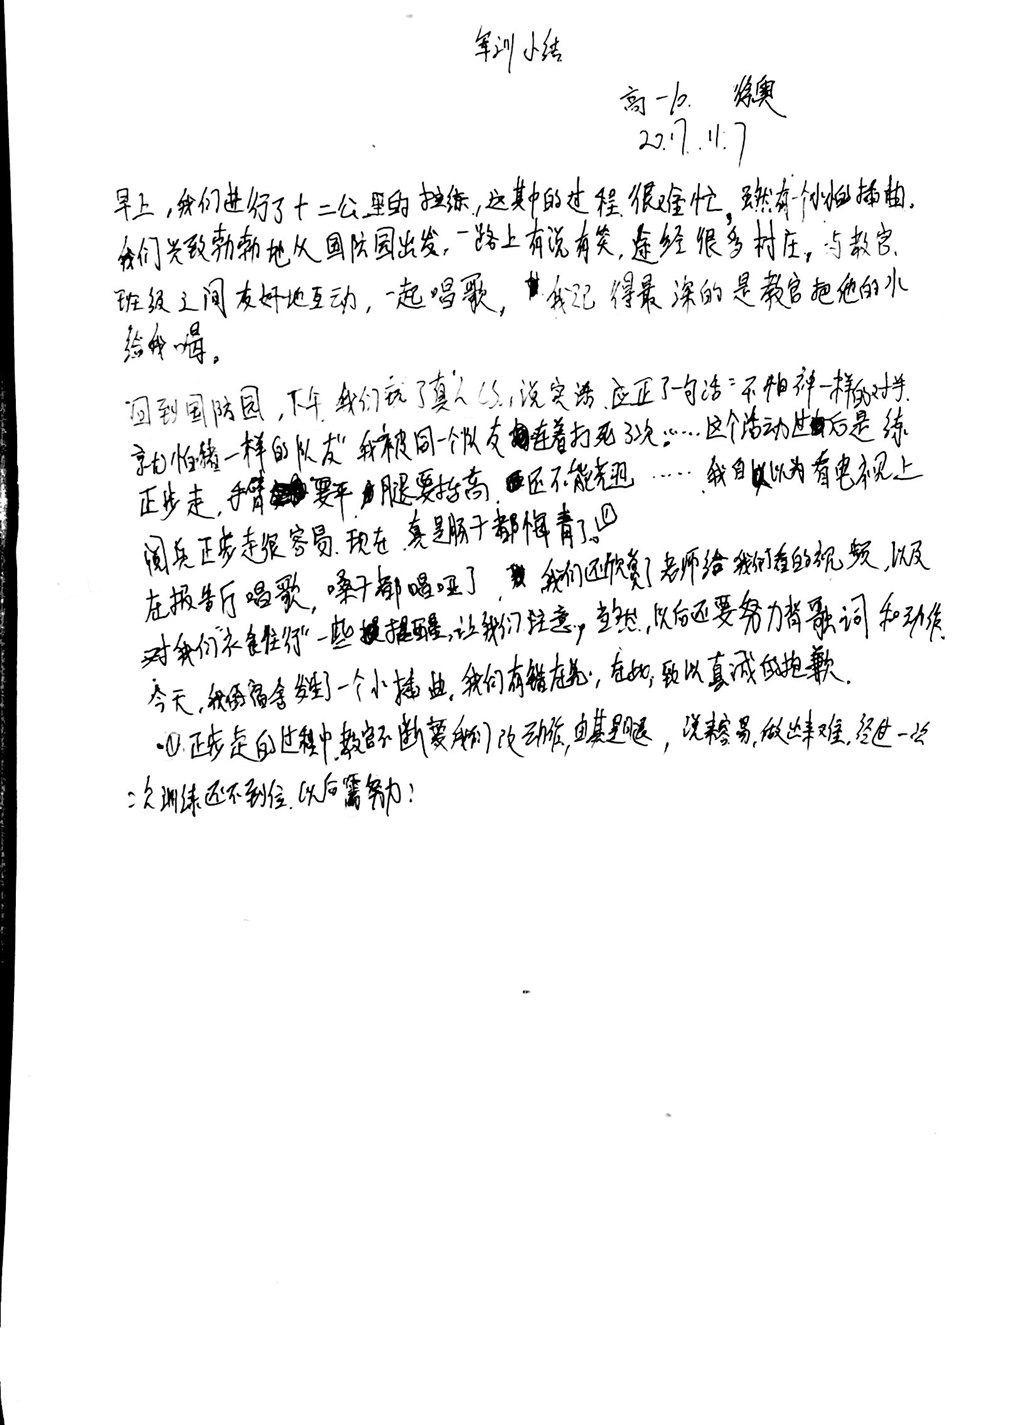 军训小结
高一6. 徐奥
2017.11.7
早上，我们进行了十二公里的拉练，这其中的过程很难忙，虽然有个小的插曲.
我们兴致勃勃地从国防园出发，一路上有说有笑，途经很多村庄，与教官.
班级之间友好地互动，一起唱歌，我记得最深的是教官把他的水
给我喝。
回到国防园，下午.我们玩了真人CS，说实话.应正了一句话："不怕神一样的对手.
就怕猪一样的队友"我被同一个队友连着打死了3次……这个活动过后是练
正步走，手臂要平，腿要抬高，还不能弯……我自以以为看电视上
阅兵正步走很容易.现在真是肠子都悔青了。①
在报告厅唱歌，嗓子都唱哑了，我们还欣赏了老师给我们看的视频，以及
对我们"衣食住行"一些提醒，让我们注意，当然，以后还要努力背歌词和动作.
今天，我的宿舍发生了一个小插曲，我们有错在先，在此，致以真诚的抱歉.
①.正步走的过程中，教官不断要我们改动作，尤其是腿，说来容易，做出来难.经过一次
二次训练还不到位.以后需努力！